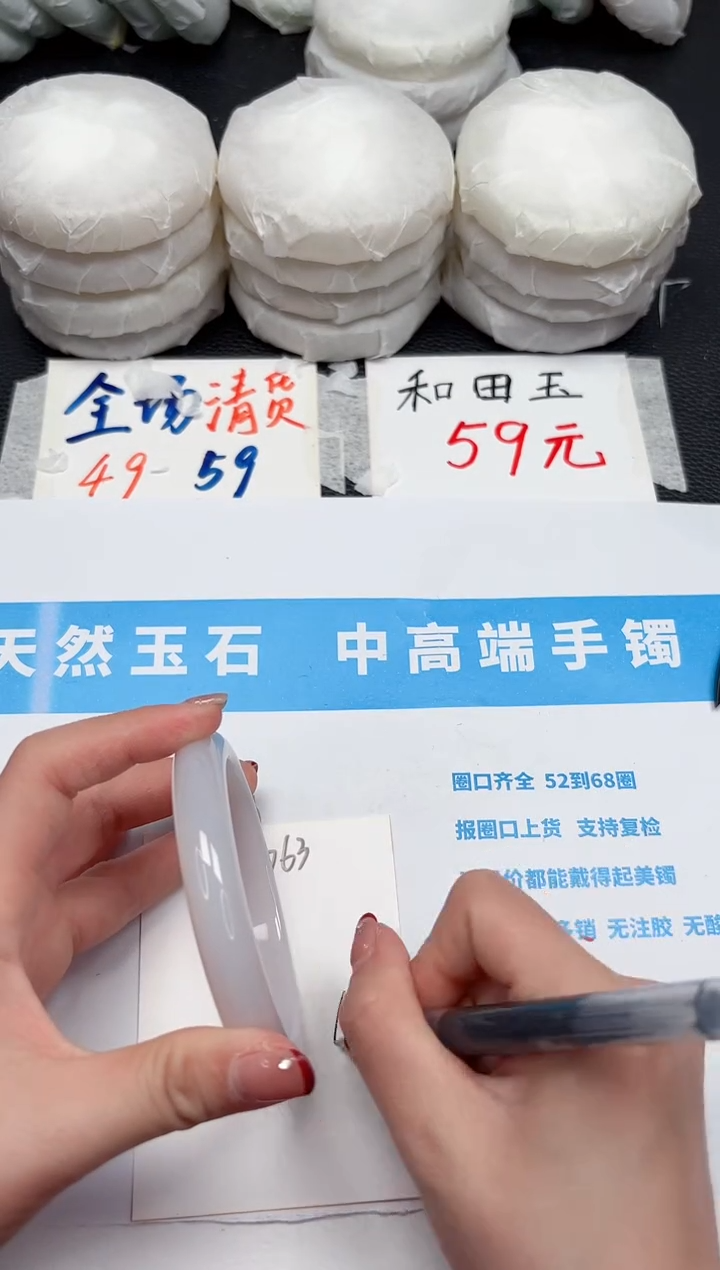 全场清货
49-59
和田玉
59元
天然玉石 中高端手镯
圈口齐全 52到68圈
报圈口上货 支持复检
价都能戴得起美镯
销 无注胶 无酸
63